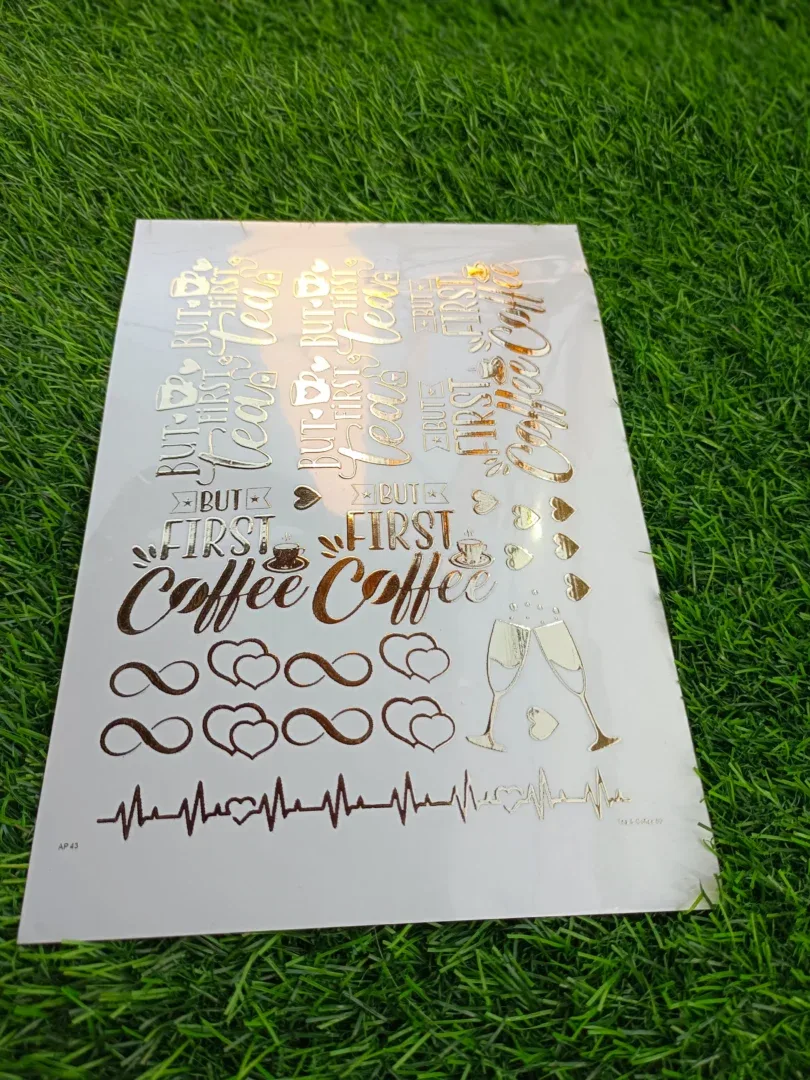 BUT FiRST
tea
BUT FiRST
tea
BUT
FIRST
Coffee
BUT FiRST
tea
BUT FiRST
tea
BUT
FIRST
Coffee
BUT
FIRST
Coffee
BUT
FIRST
Coffee
AP 43